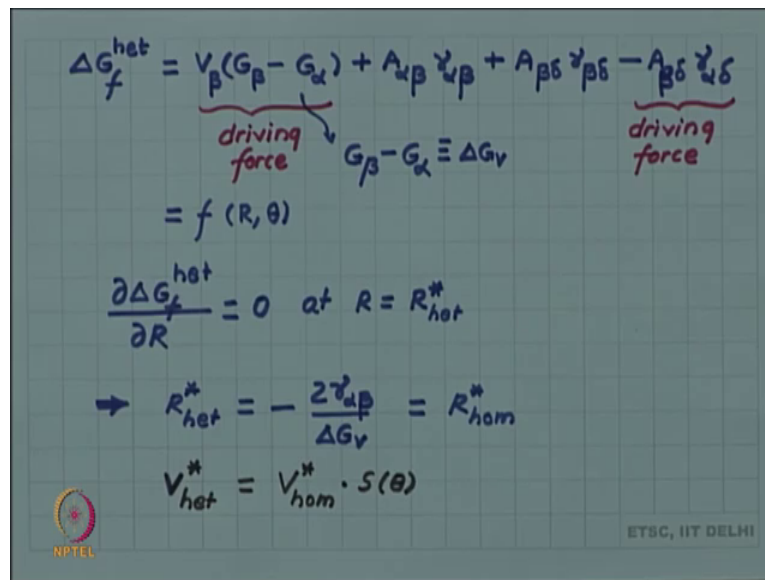 ΔG_f^het = V_β(G_β − G_α) + A_αβ γ_αβ + A_βδ γ_βδ − A_βδ γ_αδ
driving force
G_β − G_α ≡ ΔG_V
driving force
= f (R, θ)
∂ΔG_f^het / ∂R = 0 at R = R*_het
→ R*_het = − 2γ_αβ / ΔG_V = R*_hom
V*_het = V*_hom · S(θ)
NPTEL
ETSC, IIT DELHI